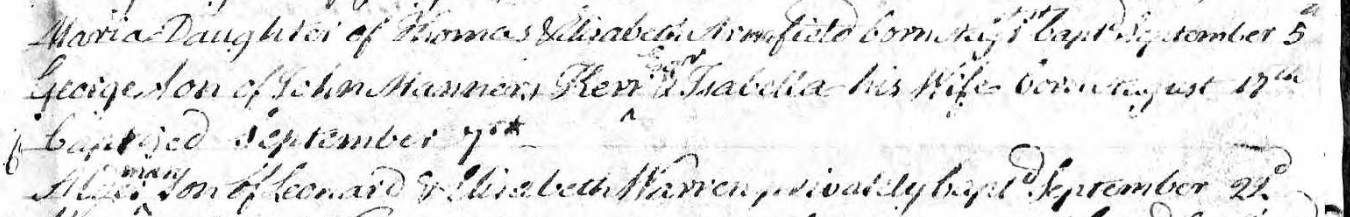 Maria Daughter of Thomas & Elisabeth Armfield born Augst 1st bapt September 5th
George Son of John Manners Kerr Esqr & Isabella his Wife born August 17th
baptized September 7th
Son of Leonard & Elisabeth Warren privately bapd September 22d